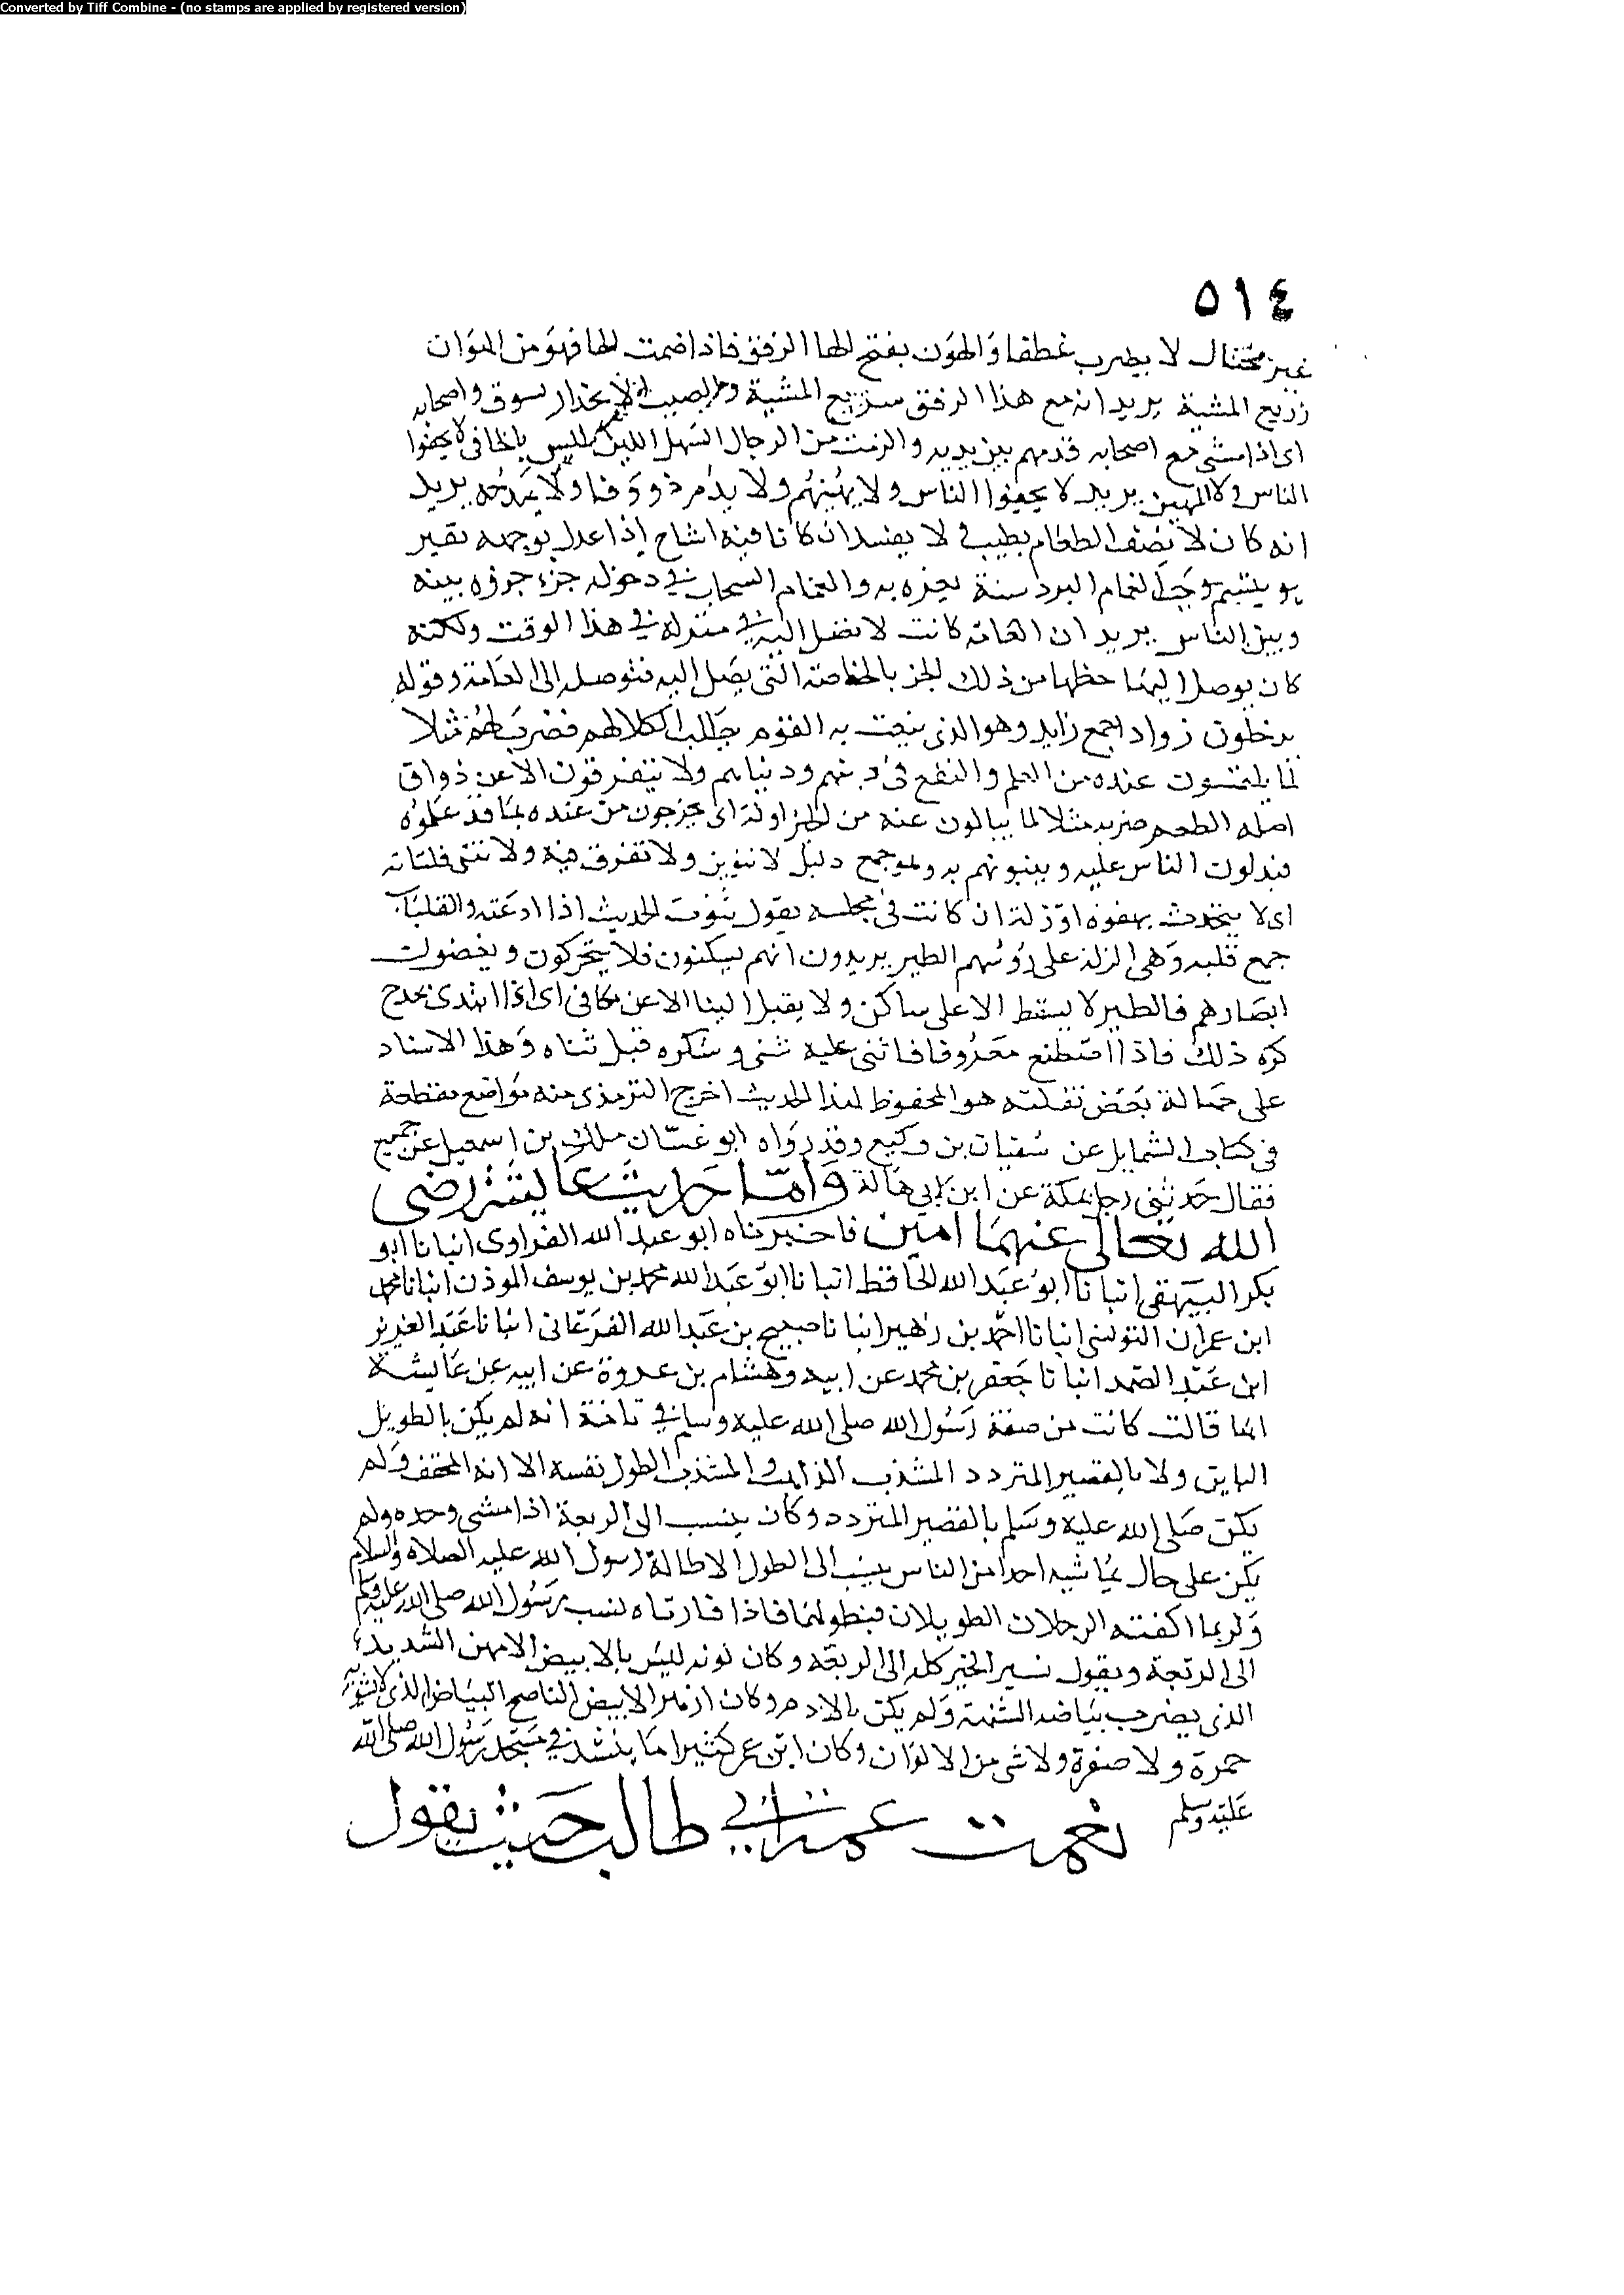 Converted by Tiff Combine - (no stamps are applied by registered version)
٥١٤
غير مختال لا يضرب غطفا والهون بفتح الها الرفق فاذا ضمت الها فهو من الهوان
زريع المشية يريد انه مع هذا الرفق سريع المشية والصبب الانحدار يسوق واصحابه
اى اذا مشى مع اصحابه قدمهم بين يديه والزمت من الرجال السهل اللين ليس بالجافى لا يجفوا
الناس ولا المهين يريد لا يجفوا الناس ولا يهينهم ولا يذم ذووقا ولا يمدحه يريد
انه كان لا يصف الطعام بطيب لا يفسد ان كانا فيه اشاح إذا عدل بوجهه نفير
الغمام البرد سنة به والغمام السحاب في دخوله جزء جزؤه بينه
وبين الناس يريد ان العامة كانت لا تصل اليه في منزله في هذا الوقت ولكنه
كان يوصل اليها حظها من ذلك الجز بالخاصة التى يصل اليه فتوصله الى العامة وقوله
يدخلون زواد اجمع زايد وهو الذى يبعث به القوم يطلب الكلا لهم فضرب لهم مثلا
لما يلتمسون عنده من العلم والنفع فى دينهم ودنياهم ولا يتفرقون الا عن ذواق
اصله الطعم ضربه مثلا لما ينالون عنه من الخير اوله اى يخرجون من عنده بما قد علموه
فيدلون الناس عليه وينبونهم به وهو جمع دليل لا تؤبن ولا تفرق فيه ولا تنثى فلتاته
اى لا يتحدث بهفوة او زلة ان كانت فى مجلسه يقول نثوت الحديث اذا اذعته والفلتات
جمع فلتة وهى الزلة على رؤسهم الطير يريدون انهم يسكنون فلا يتحركون ويغضون
ابصارهم فالطير لا يسقط الا على ساكن ولا يقبل الثنا الا عن مكافى اى اذا ابتدى بمدح
كره ذلك فاذا اصطنع معروفا فاثنى عليه مثنى وشكره قبل ثناه وهذا الاسناد
على جهالة بعض نقلته هو المحفوظ لهذا الحديث اخرج الترمذى منه مواضع مقطعة
فى كتاب الشمايل عن سفيان بن وكيع وقد رواه ابو غسان مالك بن اسمعيل عن جميع
فقال حدثنى رجل بمكة عن ابن لابي هالة وامّا حديث عايشة رضى
الله تعالى عنهما امين فاخبرناه ابو عبد الله الفراوى انبانا ابو
بكر البيهقى انبانا ابو عبد الله الحافظ انبانا ابو عبد الله محمد بن يوسف الموذن انبانا محمد
ابن عمران النونسى انبانا احمد بن زهير انبانا صبيح بن عبد الله الفرغانى انبانا عبد العزيز
ابن عبد الصمد انبانا جعفر بن محمد عن ابيه وهشام بن عروة عن ابيه عن عايشة
انها قالت كانت من صفة رسول الله صلى الله عليه وسلم في قامته انه لم يكن بالطويل
الباين ولا بالقصير المتردد المشذب الذاهب والمشذب الطول نفسه الا انه المخفف ولم
يكن صلى الله عليه وسلم بالقصير المتردد وكان ينسب الى الربعة اذا مشى وحده ولم
يكن على حال يماشيه احد من الناس ينسب الى الطول الا طاله رسول الله عليه الصلاه والسلام
ولربما اكتنفه الرجلان الطويلان فيطولهما فاذا فارقاه نسب رسول الله صلى الله عليه وسلم
الى الربعة ويقول نسير الخير كله الى الربعة وكان لونه ليس بالابيض الامهق الشديد
الذى يضرب بياضه الشهبة ولم يكن بالادم وكان ازهر الابيض الناصع البياض الذى لا تشوبه
حمرة ولا صفرة ولا شى من الالوان وكان ابن عمر كثيرا ما ينشد في مسجد رسول الله صلى الله
عليه وسلم نعت عمه ابي طالب حيث يقول